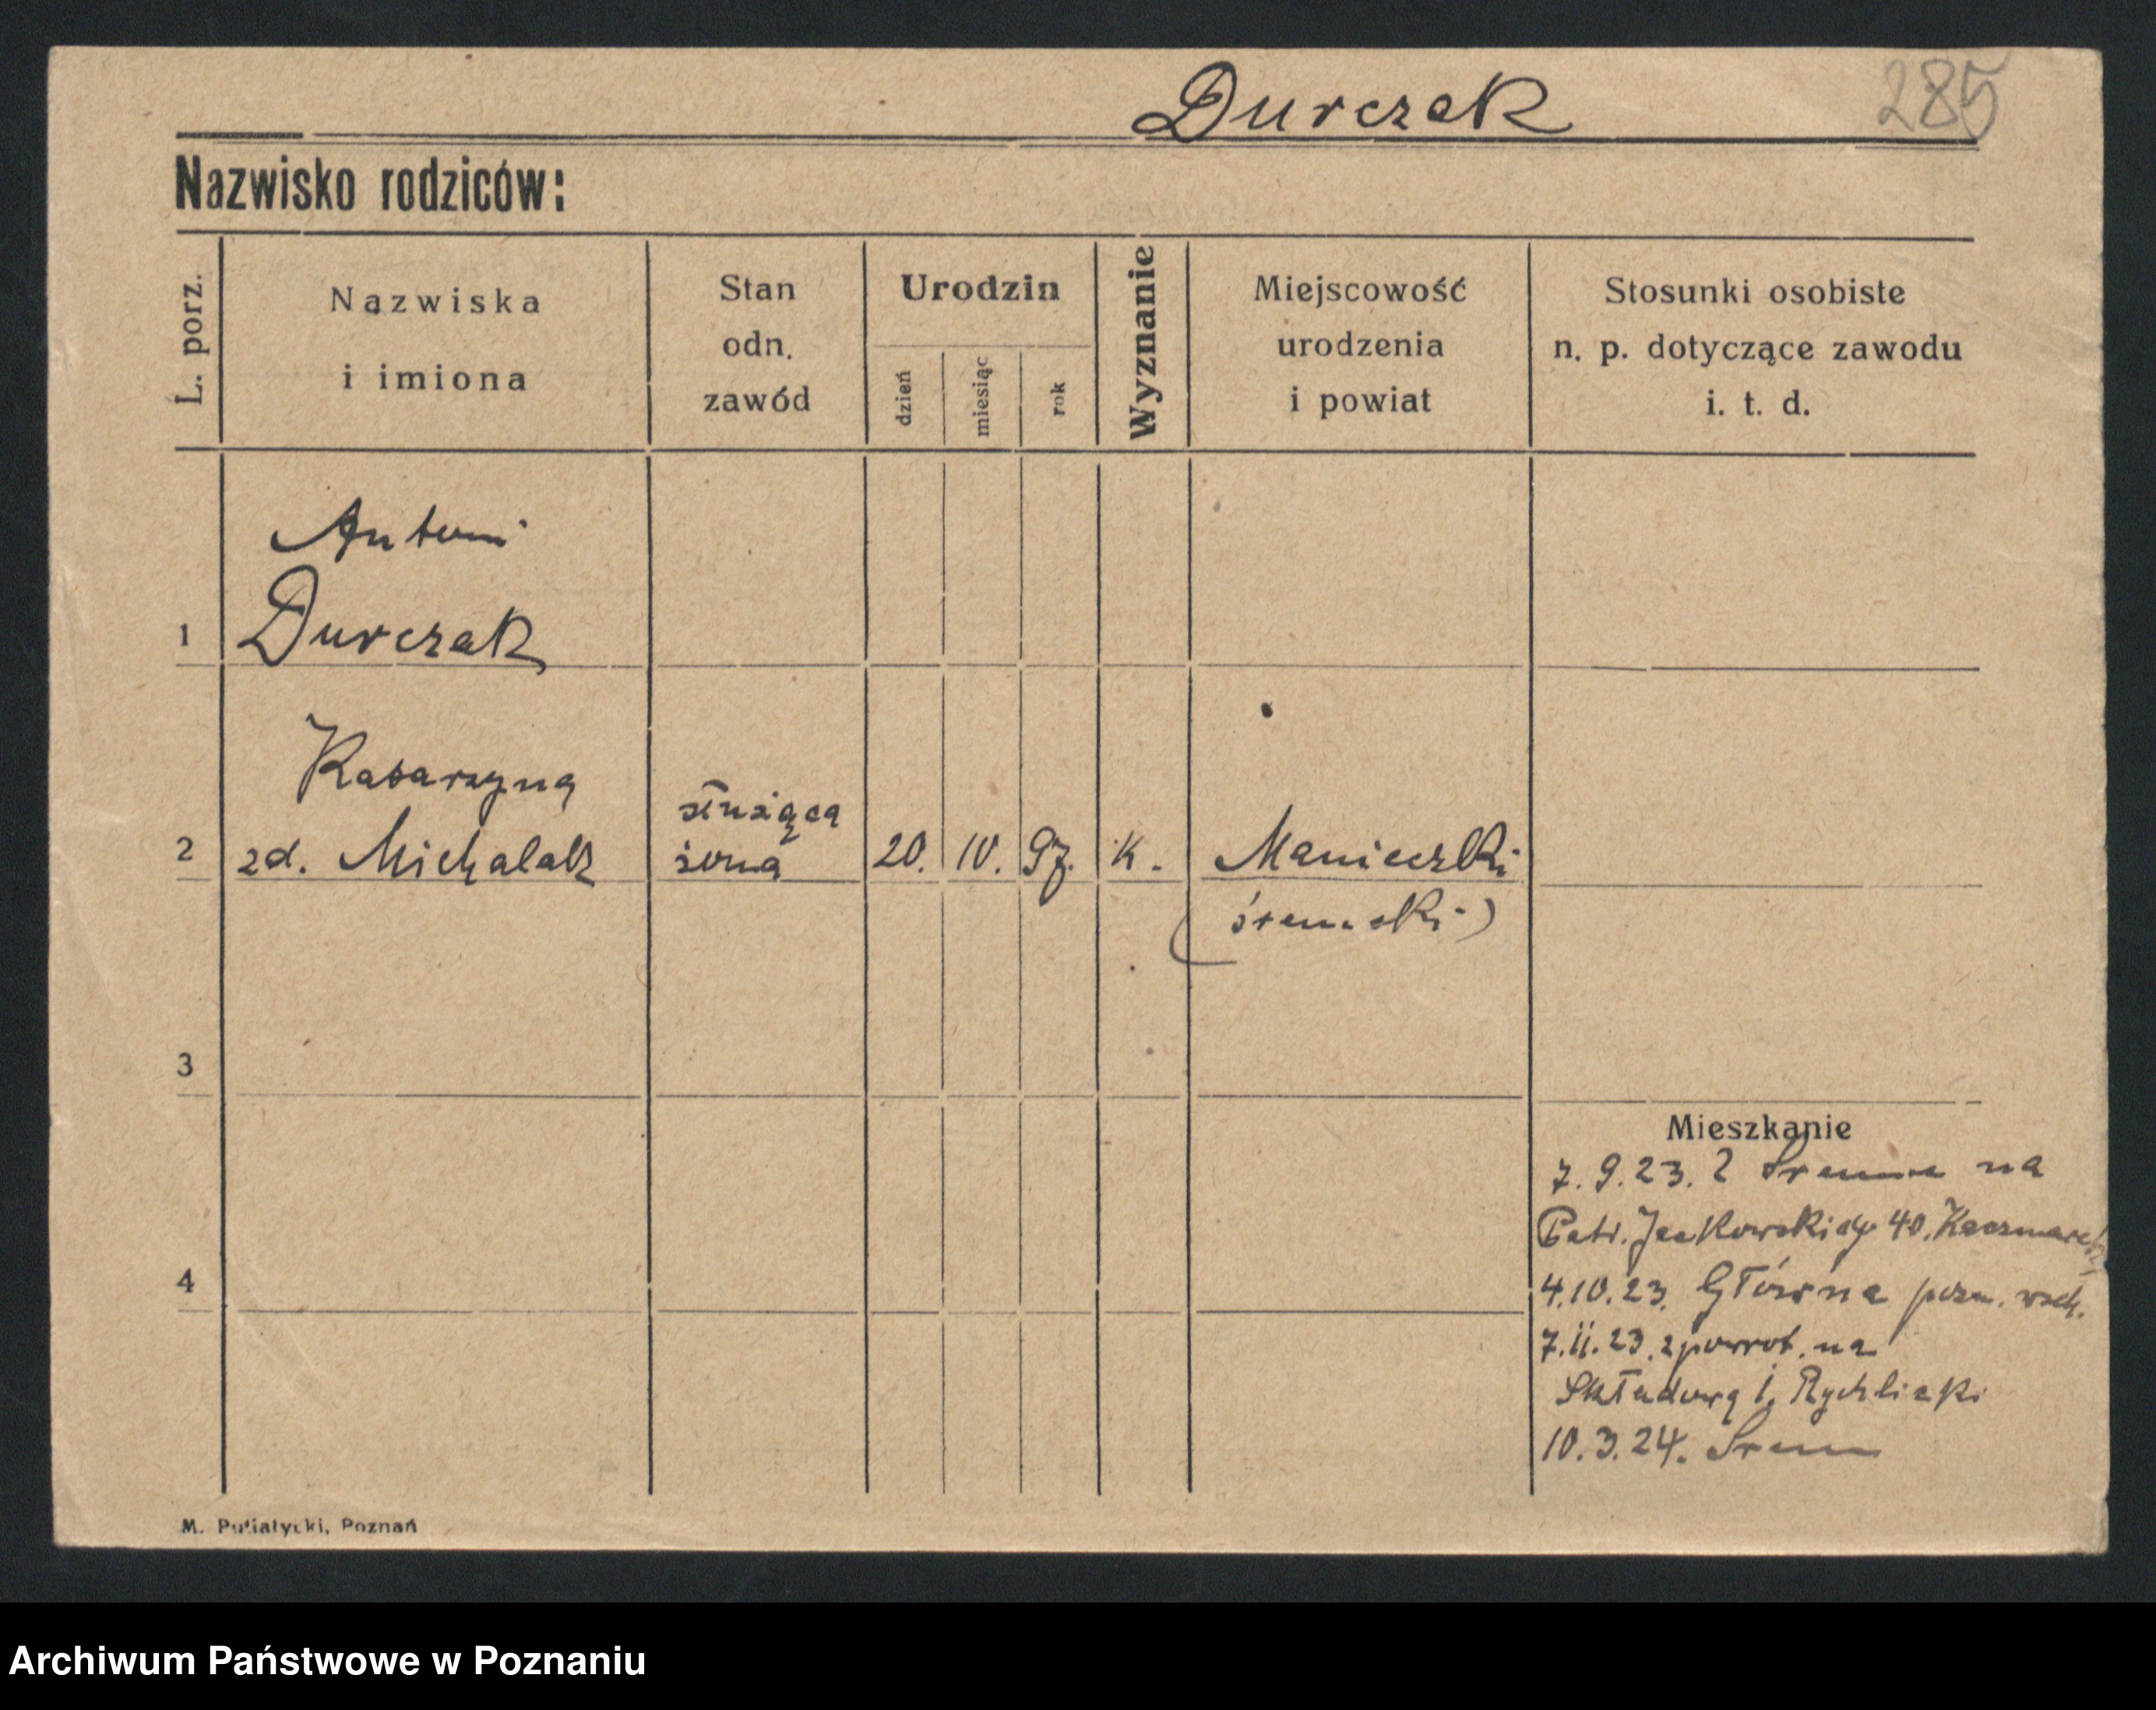 Durczak
285
Nazwisko rodziców:
L. porz.
Nazwiska
i imiona
Stan
odn.
zawód
Urodzin
dzień
miesiąc
rok
Wyznanie
Miejscowość
urodzenia
i powiat
Stosunki osobiste
n. p. dotyczące zawodu
i. t. d.
Antoni
1 Durczak
Katarzyna
służąca
2 zd. Michalak żona 20. IV. 97. K. Manieczki
(śremski)
3
Mieszkanie
7.9.23. z Śremu na
Patr. Jackowskiego 40. Kaczmarek
4
4.10.23. Główna pozn. wsch.
7.11.23. z powrot. na
Składową 1, Rychlicki
10.3.24. Śrem
M. Putiatycki, Poznań
Archiwum Państwowe w Poznaniu